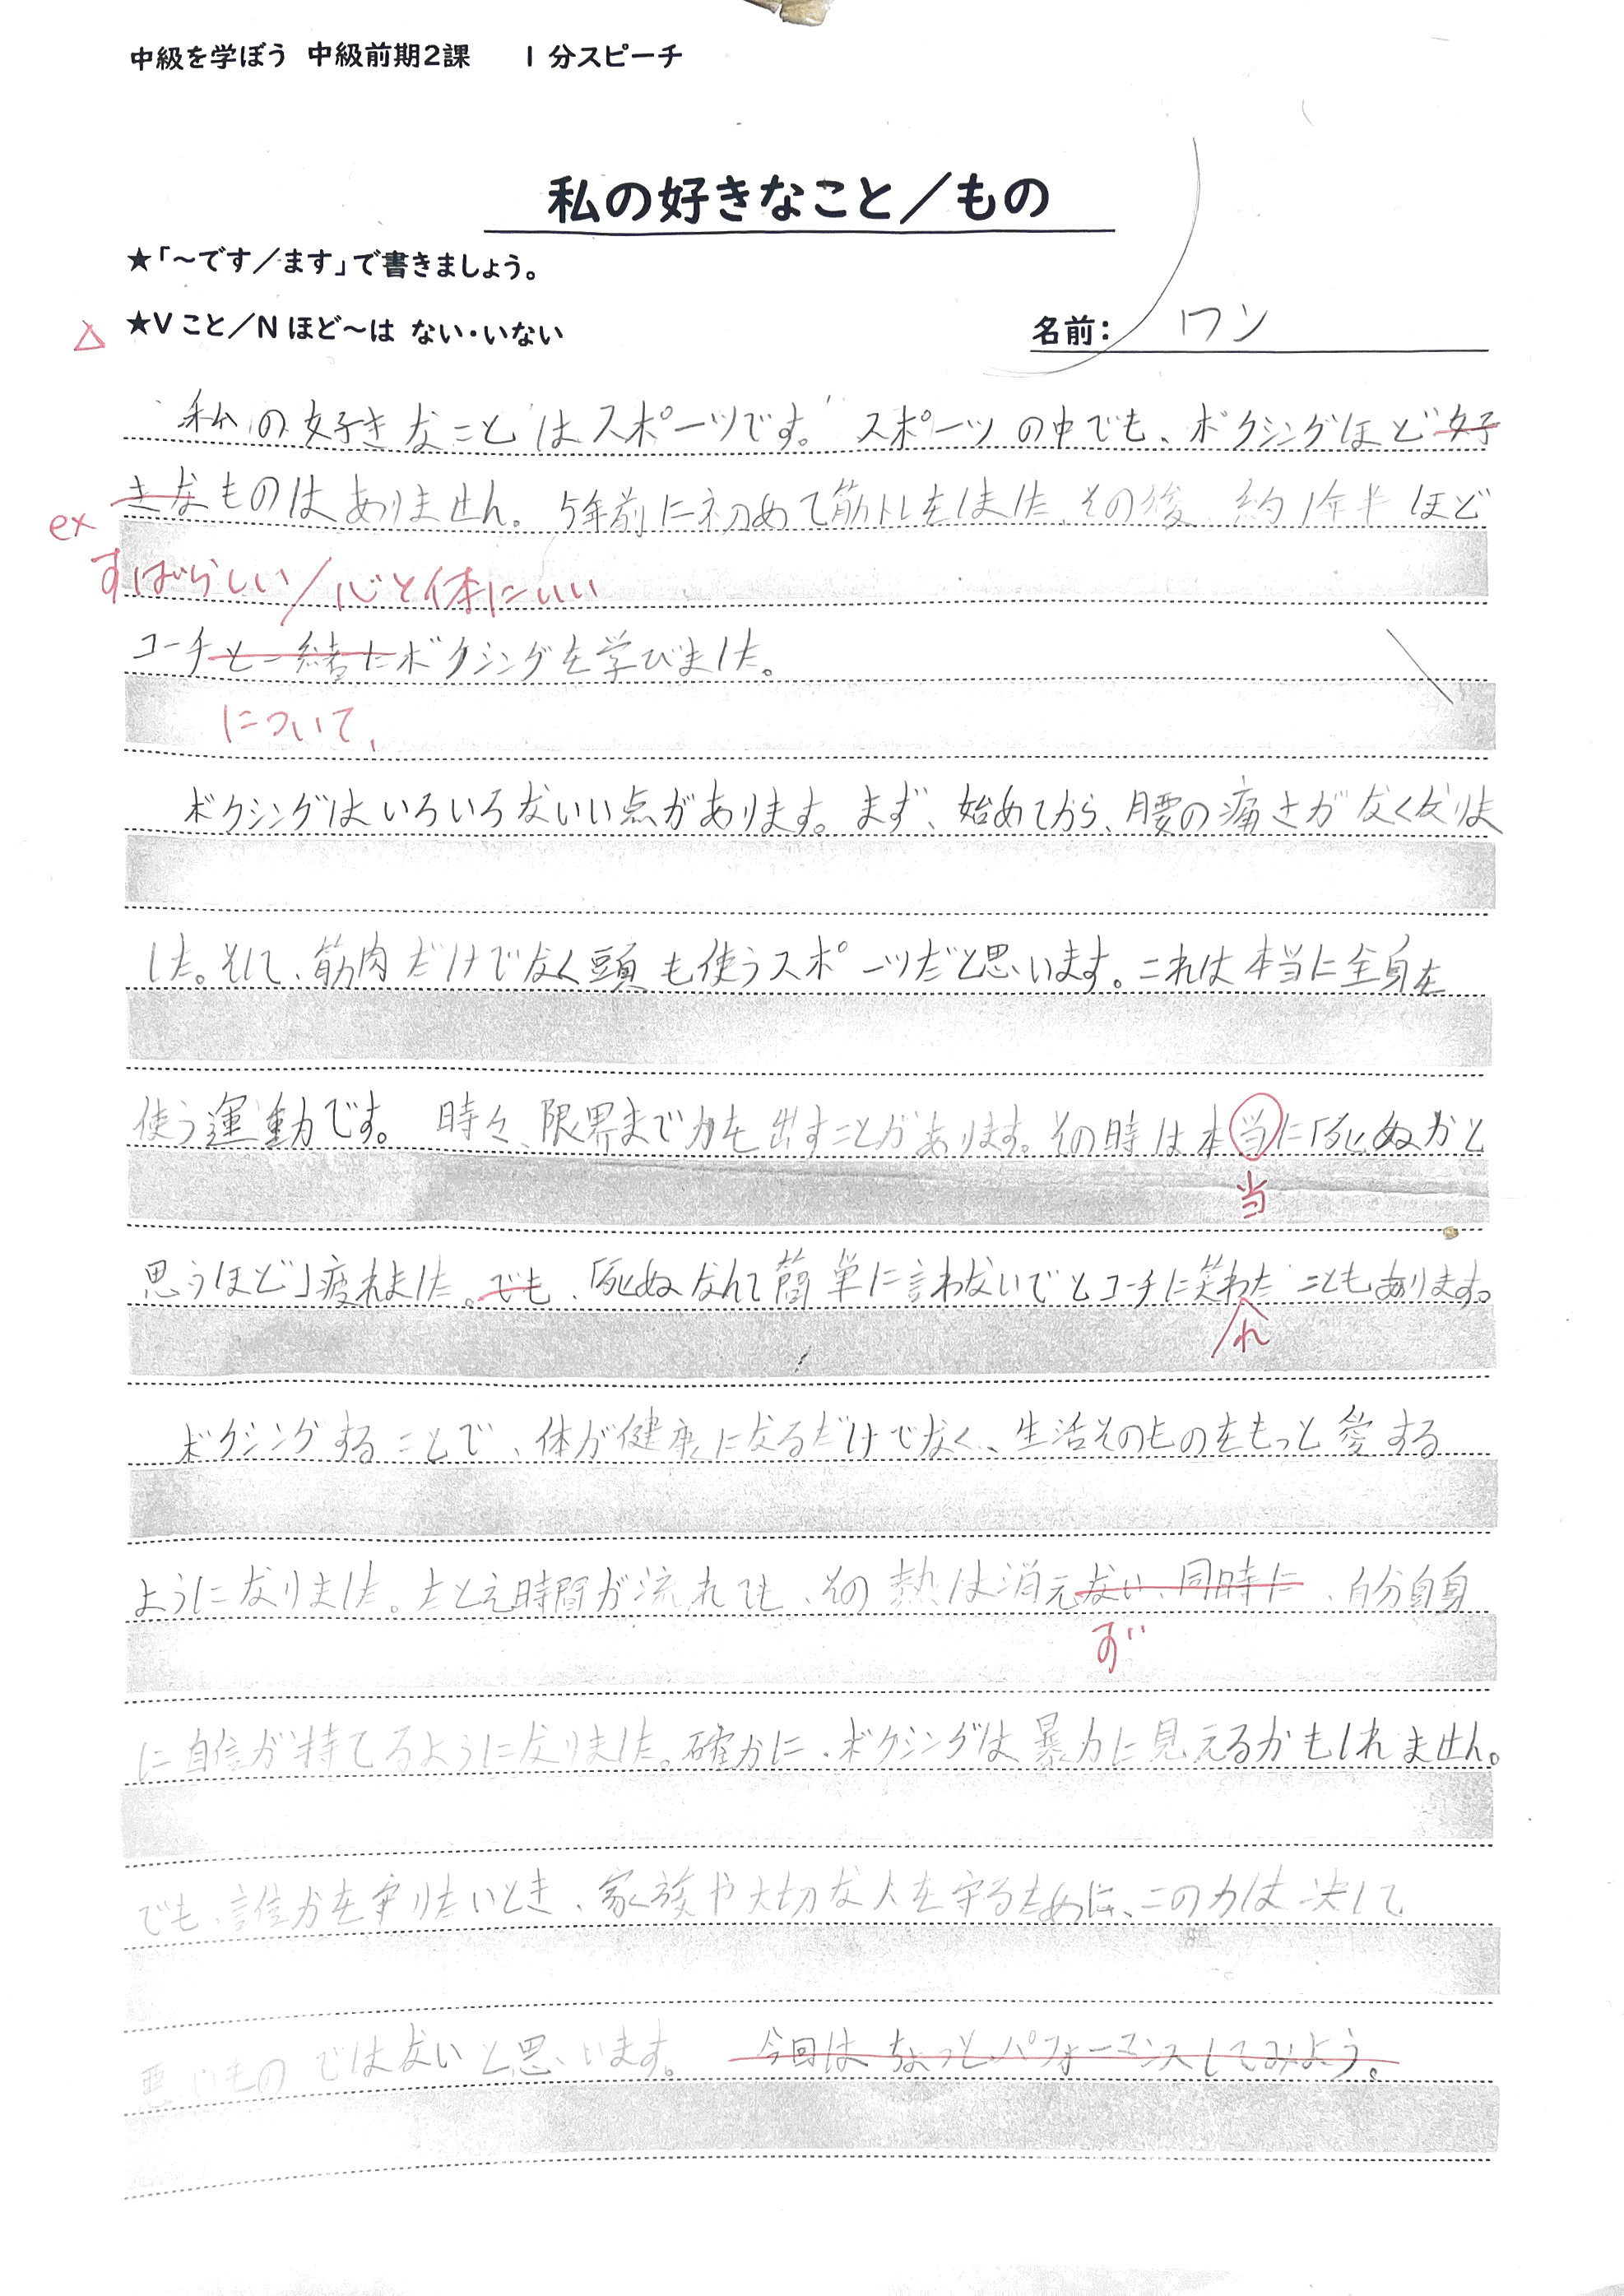 中級を学ぼう 中級前期2課 1分スピーチ
私の好きなこと／もの
★「～です／ます」で書きましょう。
△ ★Vこと／Nほど～は ない・いない
名前： ワン
私の好きなことはスポーツです。スポーツの中でも、ボクシングほど好
きなものはありません。5年前に初めて筋トレをしました。その後、約1年半ほど
ex
すばらしい／心と体にいい
コーチと一緒にボクシングを学びました。
について、
ボクシングはいろいろないい点があります。まず、始めてから、腰の痛さがなくなりま
した。そして、筋肉だけでなく頭も使うスポーツだと思います。これは本当に全身を
使う運動です。時々、限界まで力を出すことがあります。その時は本当に「死ぬかと
当
思うほど」疲れました。でも、「死ぬなんて簡単に言わないでとコーチに笑わたこともあります。
れ
ボクシングすることで、体が健康になるだけでなく、生活そのものをもっと愛する
ようになりました。たとえ時間が流れても、その熱は消えない、同時に、自分自身
ず
に自信が持てるようになりました。確かに、ボクシングは暴力に見えるかもしれません。
でも、誰かを守りたいとき、家族や大切な人を守るために、この力は決して
悪いものではないと思います。今回はちょっとパフォーマンスしてみよう。